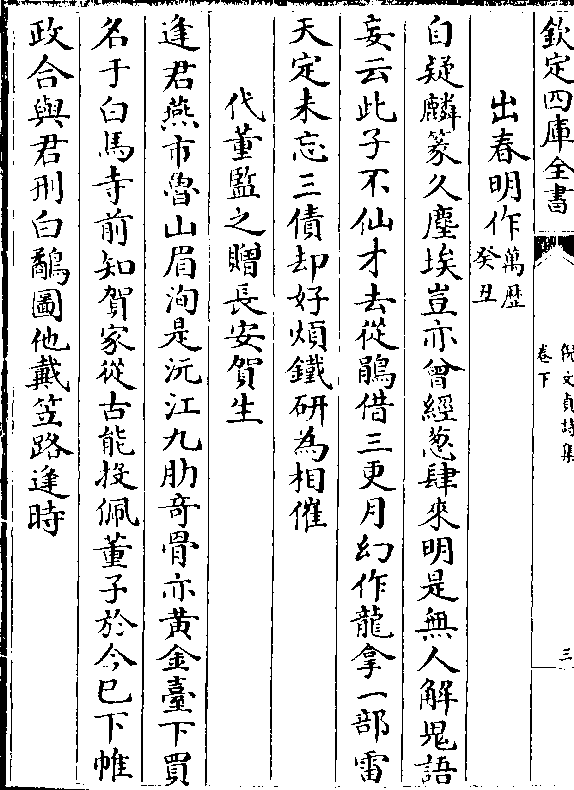 欽定四庫全書
倪文貞詩集
卷下
三
出春明作萬歷
癸丑
自疑麟篆久塵埃豈亦曾經葱肆來明是無人解鬼語
妄云此子不仙才去從鵑借三更月幻作龍拿一部雷
天定未忘三債却好煩鐵研為相催
代董監之贈長安賀生
逢君燕市魯山眉洵是沅江九肋奇骨亦黃金臺下買
名于白馬寺前知賀家從古能投佩董子於今已下帷
政合與君刑白鷸圖他戴笠路逢時